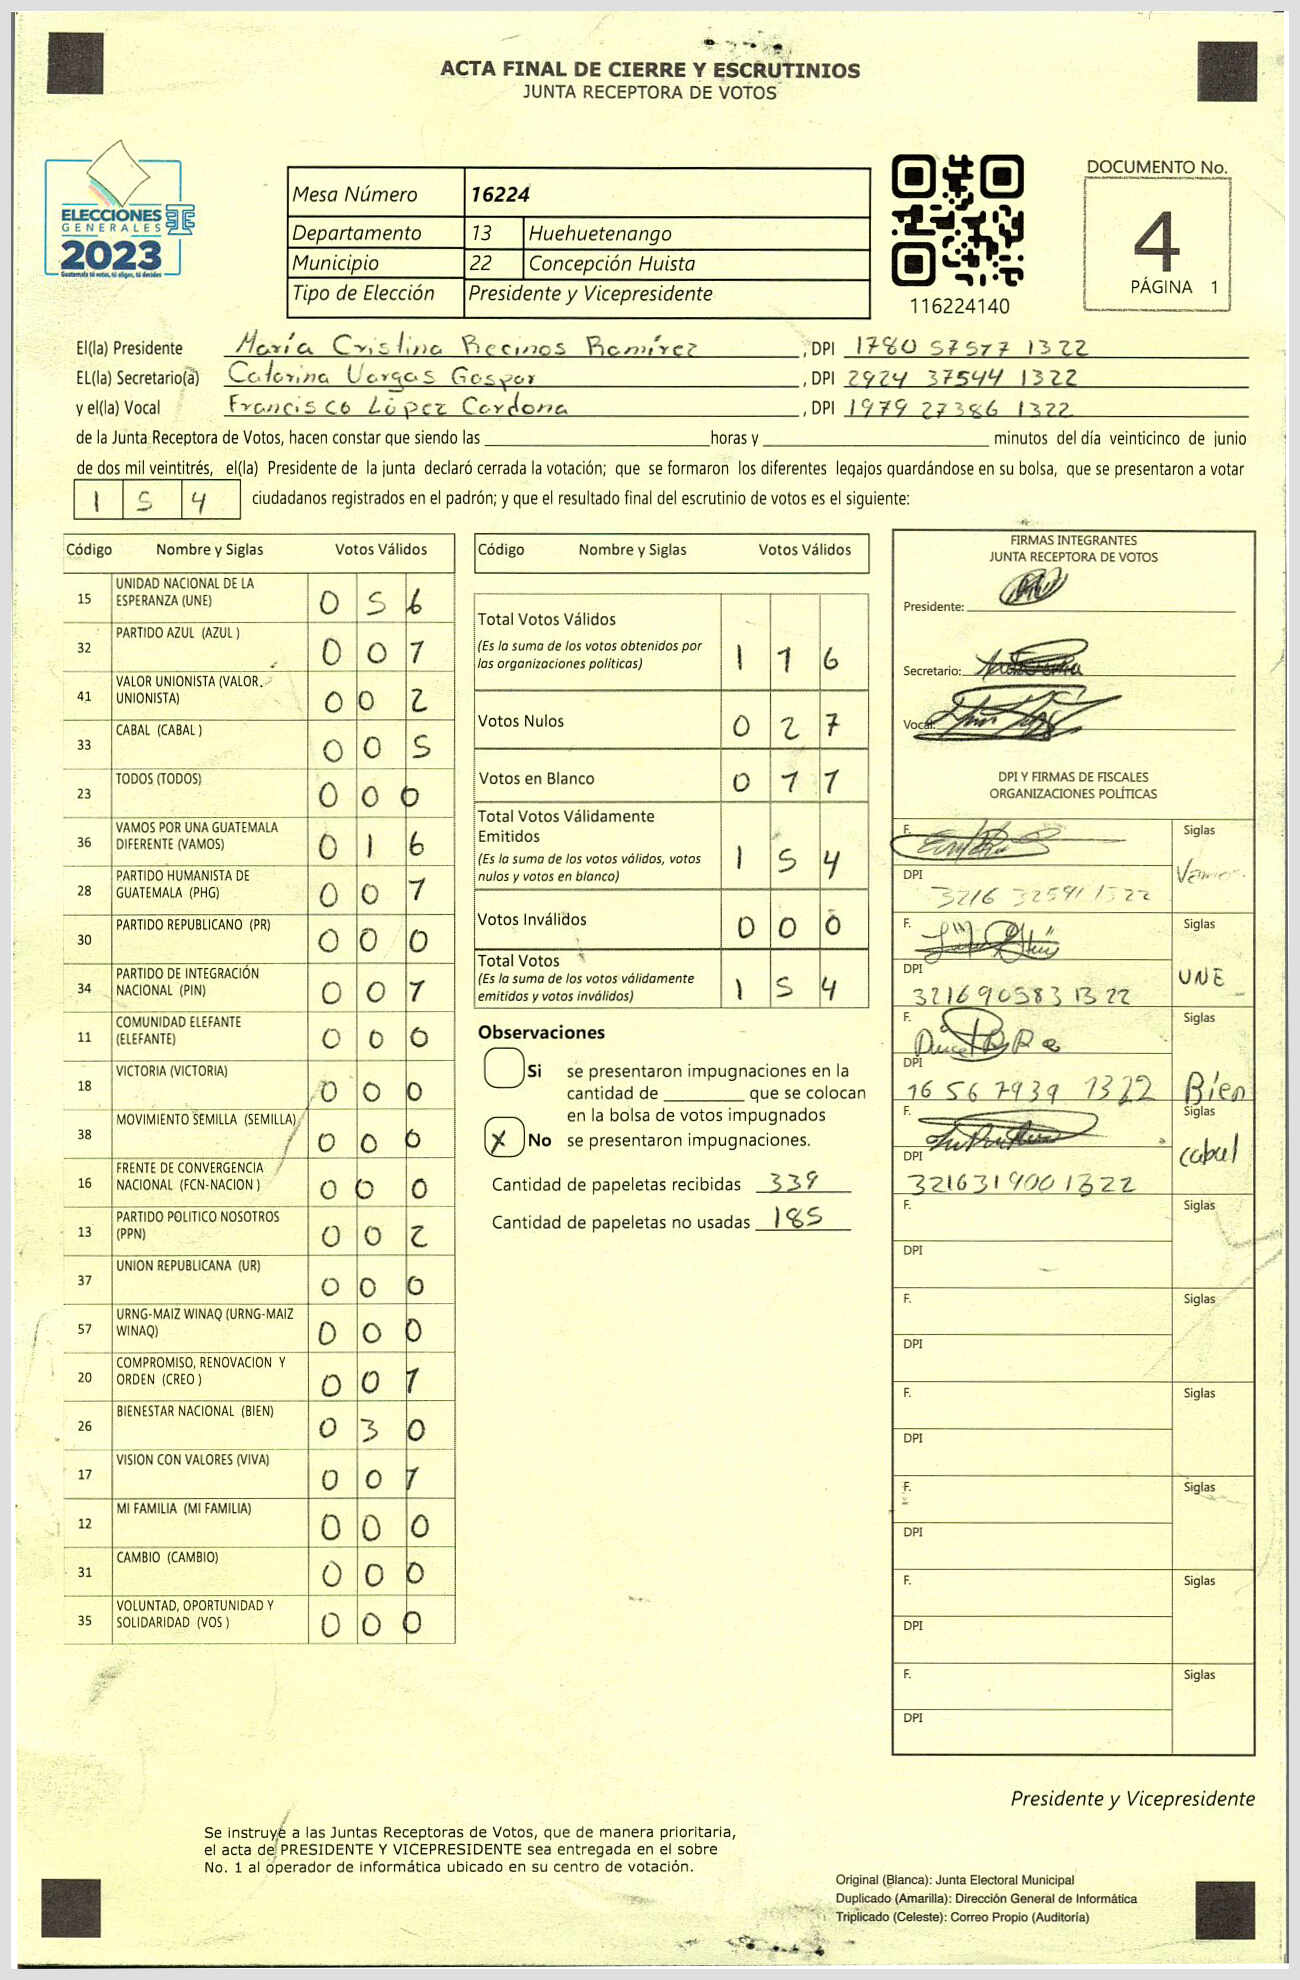 ACTA FINAL DE CIERRE Y ESCRUTINIOS
JUNTA RECEPTORA DE VOTOS
ELECCIONES
GENERALES
2023
Guatemala tú votas, tú eliges, tú decides
Mesa Número 16224
Departamento 13 Huehuetenango
Municipio 22 Concepción Huista
Tipo de Elección Presidente y Vicepresidente
116224140
DOCUMENTO No.
4
PÁGINA 1
El(la) Presidente María Cristina Recinos Ramírez, DPI 1780 57577 1322
EL(la) Secretario(a) Catarina Vargas Gaspar, DPI 2924 37544 1322
y el(la) Vocal Francisco López Cardona, DPI 1979 27386 1322
de la Junta Receptora de Votos, hacen constar que siendo las ____ horas y ____ minutos del día veinticinco de junio
de dos mil veintitrés, el(la) Presidente de la junta declaró cerrada la votación; que se formaron los diferentes legajos quardándose en su bolsa, que se presentaron a votar
154 ciudadanos registrados en el padrón; y que el resultado final del escrutinio de votos es el siguiente:
Código Nombre y Siglas Votos Válidos
15 UNIDAD NACIONAL DE LA ESPERANZA (UNE) 056
32 PARTIDO AZUL (AZUL ) 001
41 VALOR UNIONISTA (VALOR. UNIONISTA) 002
33 CABAL (CABAL ) 005
23 TODOS (TODOS) 000
36 VAMOS POR UNA GUATEMALA DIFERENTE (VAMOS) 016
28 PARTIDO HUMANISTA DE GUATEMALA (PHG) 001
30 PARTIDO REPUBLICANO (PR) 000
34 PARTIDO DE INTEGRACIÓN NACIONAL (PIN) 001
11 COMUNIDAD ELEFANTE (ELEFANTE) 000
18 VICTORIA (VICTORIA) 000
38 MOVIMIENTO SEMILLA (SEMILLA) 000
16 FRENTE DE CONVERGENCIA NACIONAL (FCN-NACION ) 000
13 PARTIDO POLITICO NOSOTROS (PPN) 002
37 UNION REPUBLICANA (UR) 000
57 URNG-MAIZ WINAQ (URNG-MAIZ WINAQ) 000
20 COMPROMISO, RENOVACION Y ORDEN (CREO ) 001
26 BIENESTAR NACIONAL (BIEN) 030
17 VISION CON VALORES (VIVA) 001
12 MI FAMILIA (MI FAMILIA) 000
31 CAMBIO (CAMBIO) 000
35 VOLUNTAD, OPORTUNIDAD Y SOLIDARIDAD (VOS ) 000
Código Nombre y Siglas Votos Válidos
Total Votos Válidos 116
(Es la suma de los votos obtenidos por
las organizaciones políticas)
Votos Nulos 027
Votos en Blanco 011
Total Votos Válidamente
Emitidos 154
(Es la suma de los votos válidos, votos
nulos y votos en blanco)
Votos Inválidos 000
Total Votos 154
(Es la suma de los votos válidamente
emitidos y votos inválidos)
Observaciones
Si se presentaron impugnaciones en la
cantidad de ____ que se colocan
en la bolsa de votos impugnados
X No se presentaron impugnaciones.
Cantidad de papeletas recibidas 339
Cantidad de papeletas no usadas 185
FIRMAS INTEGRANTES
JUNTA RECEPTORA DE VOTOS
Presidente:
Secretario:
Vocal:
DPI Y FIRMAS DE FISCALES
ORGANIZACIONES POLÍTICAS
F. Siglas
DPI 3216 32591 1322 Vamos.
F. Siglas
DPI 321690583 1322 UNE
F. Siglas
DPI 16 56 7939 1322 Bien
F. Siglas
DPI 321631900 1322 cabal
F. Siglas
DPI
F. Siglas
DPI
F. Siglas
DPI
F. Siglas
DPI
F. Siglas
DPI
F. Siglas
DPI
Presidente y Vicepresidente
Se instruye a las Juntas Receptoras de Votos, que de manera prioritaria,
el acta de PRESIDENTE Y VICEPRESIDENTE sea entregada en el sobre
No. 1 al operador de informática ubicado en su centro de votación.
Original (Blanca): Junta Electoral Municipal
Duplicado (Amarilla): Dirección General de Informática
Triplicado (Celeste): Correo Propio (Auditoría)